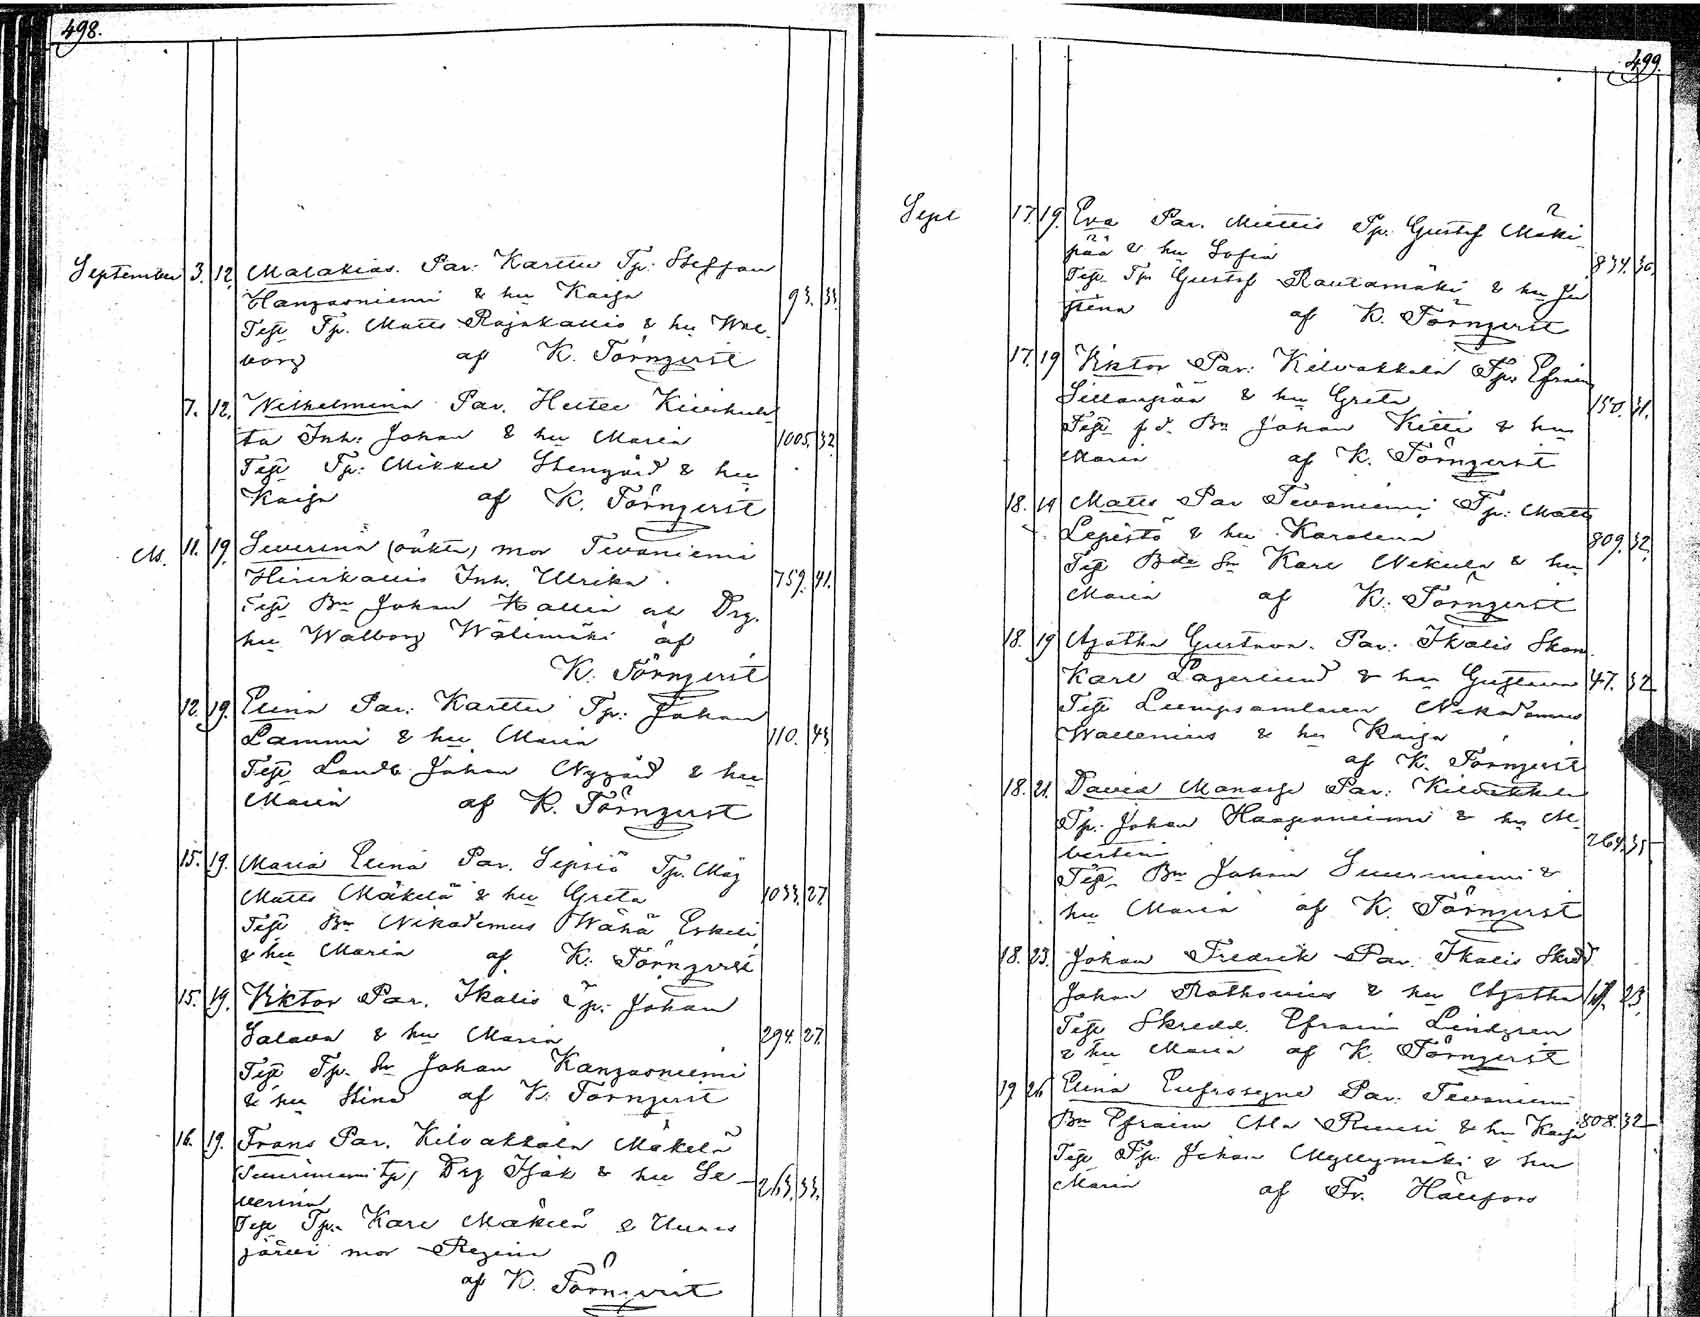 498.
September 3. 12. Malakias. Par: Karttu Tp: Steffan
Kanzasniemi & hu Kaisa 93. 33.
Test Tp. Matts Rajakallio & hu Wal-
borg af K. Törnqvist
7. 12. Wilhelmina Par. Heittei
ta Inh: Johan & hu Maria 1005. 32.
Test Tp: Mikkel Stengård & hu
Kaisa af K. Törnqvist
11. 19. Severina (oäkta) mor Tevaniemi
Inh. Ulrika. 759. 41.
Test Bn Johan Kallia Drg.
hu Walborg Wälimäki af
K. Törnqvist
12. 19. Elina Par: Karttu Tp: Johan
Lammi & hu Maria 110. 43.
Test Landb Johan Nygård & hu
Maria af K. Törnqvist
15. 19. Maria Elina Par. Sipsiö Tp. Mäg
Matts Mäkelä & hu Greta 1033. 27.
Test Bn Nikademus Wähä Erkeli
& hu Maria af K. Törnqvist
15. 19. Viktor Par. Ikalis Tp: Johan
Salava & hu Maria 294. 27.
Test Tp. Sn Johan Kanzasniemi
& hu Stina af K. Törnqvist
16. 19. Frans Par. Kilvakkala Mäkelä
Suuriniemi tp, Drg Isak & hu Se- 263. 33.
verina
Test Tp. Karl Mäkelä &
järvi mor Regina
af K. Törnqvist
499.
Sept 17. 19. Eva Par. Miettis Tp: Gustaf Mäki-
pää & hu Sofia 834. 36.
Test Tp Gustaf Rautamäki & hu Ju
stina af K. Törnqvist
17. 19 Viktor Par: Kilvakkala Tp: Efraim
Sillanpää & hu Greta 150. 31.
Test f.d. Bn Johan Kitti & hu
Maria af K. Törnqvist
18. 19 Matts Par Tevaniemi Tp: Matts
Lepistö & hu Karolina 809. 32.
Test Bde Sn Karl Nikula & hu
Maria af K. Törnqvist
18. 19 Agatha Gustava. Par: Ikalis Skom.
Karl Lagerlund & hu Gustava 47. 32
Test Lumpsamlaren Nikodemus
Wallenius & hu Kaisa
af K. Törnqvist
18. 21. David Manasse Par: Kilvakkala
Tp: Johan Haapaniemi & hu Al-
bertina 264. 35
Test Bn Johan Suuriniemi &
hu Maria af K. Törnqvist
18. 23. Johan Fredrik Par. Ikalis Skrdd
Johan Rothovius & hu Agatha 23.
Test Skredd. Efraim Lindgren
& hu Maria af K. Törnqvist
19 26 Elina Eufrosyne Par: Tevaniemi
Bn Efraim Ala Ruusi & hu Kaisa 808. 32
Test Tp. Johan Myllymäki & hu
Maria af Fr. Hällfors